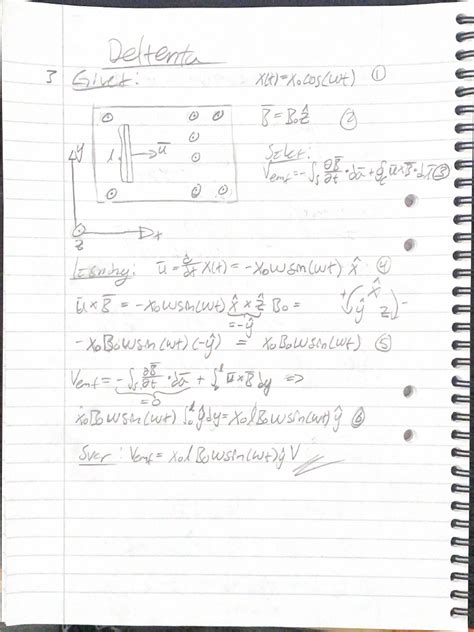 Deltenta
3 Givet: x(t)=x₀cos(ωt) ①
B̄ = B₀ẑ ②
y l ū
Sökt:
Vemf=-∫∫ₛ ∂B̄/∂t · dā + ∮ ū×B̄ · dl̄ ③
z x
Lösning: ū = d/dt x(t) = -x₀ωsin(ωt) x̂ ④
ū × B̄ = -x₀ωsin(ωt) x̂ × ẑ B₀ =
=-ŷ
+ x̂ ŷ ẑ -
-x₀B₀ωsin(ωt)(-ŷ) = x₀B₀ωsin(ωt) ⑤
Vemf=-∫∫ₛ ∂B̄/∂t · dā + ∫₀ˡ ū×B̄ dy ⇒
=0
x₀B₀ωsin(ωt) ∫₀ˡ ŷ dy = x₀lB₀ωsin(ωt) ŷ ⑥
Svar: Vemf = x₀lB₀ωsin(ωt) ŷ V